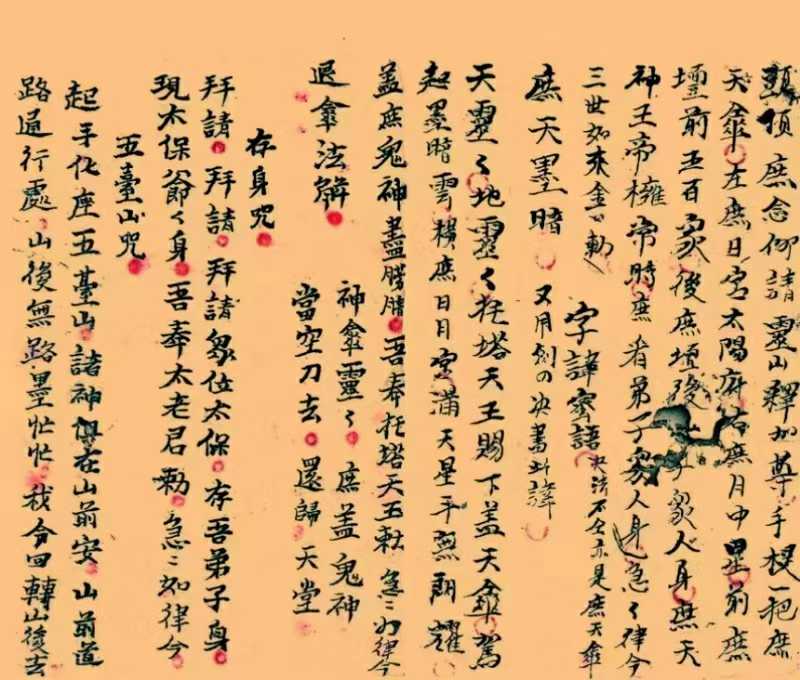 頭頂庶念仰請靈山釋加尊手把一把庶
天傘左庶日宮太陽府右庶月中星前庶
壇前五百衆後庶壇後衆人身庶天
神王帝擁常時庶看弟子衆人身急〻律令
三世如來金口勅
字諱密語
決法不全亦是庶天傘
庶天墨暗
又用剑の决書此諱
天靈〻地靈〻托塔天王賜下蓋天傘駕
起墨暗雲橫庶日月宮滿天星斗無朗耀
蓋庶鬼神盡朦朧吾奉托塔天王勅急〻如律令
退傘法解
神傘靈〻庶蓋鬼神
當空刀去還歸天堂
存身咒
拜請拜請拜請衆位太保存吾弟子身
現太保爺〻身吾奉太老君勅急〻如律令
五臺山咒
起手化座五臺山諸神俱在山前安山前道
路通行處山後無路墨忙忙我今回轉山後去